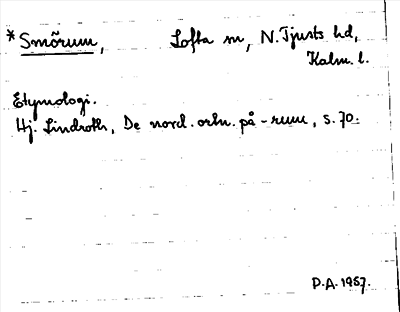 *Smörum, Lofta sn, N. Tjusts hd,
Kalm. l.
Etymologi.
Hj. Lindroth, De nord. ortn. på -rum, s. 70.
D.A. 1967.